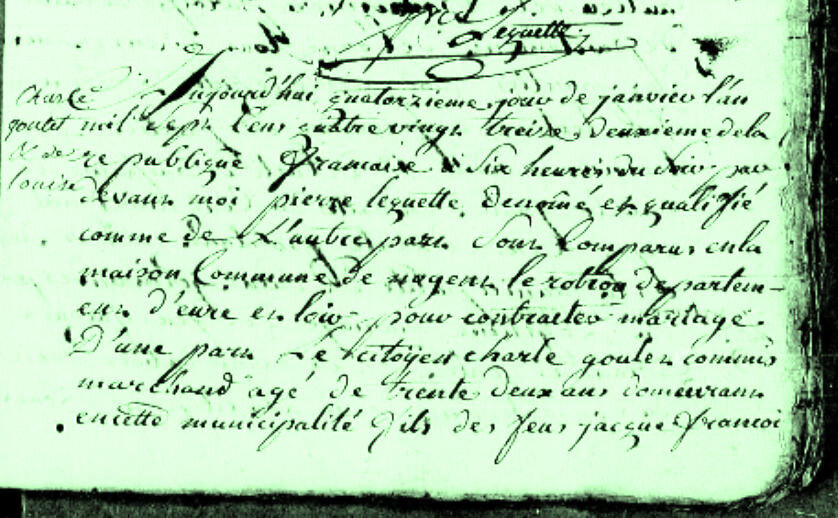 Leguette
Charle
goutet
& de
louise
Aujourd'hui quatorzieme jour de janvier l'an
mil sept Cens quatre vingt treize, deuxieme dela
re publique francaise a Six heures du Soir par
devant moi pierre leguette denomé et qualifié
comme de L'autre part Sont Comparus en la
maison Commune de nogent le rotrou departem-
ent d'eure et loir pour contracter mariage.
D'une part Le citoyen charle goutet commis
marchand agé de trente deux ans demeurant
en cette municipalité fils des feus jacque francoi